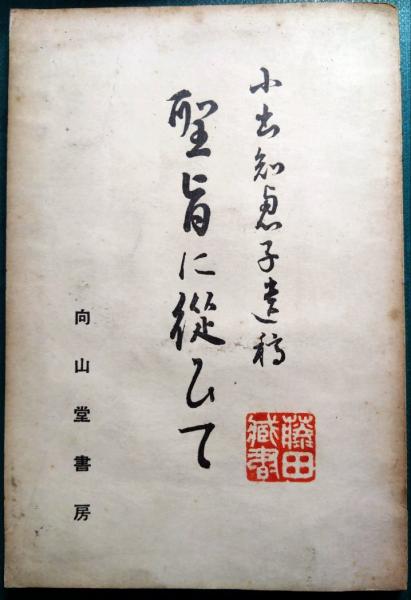 小出知恵子遺稿
聖旨に從ひて
向山堂書房
藤田
藏書